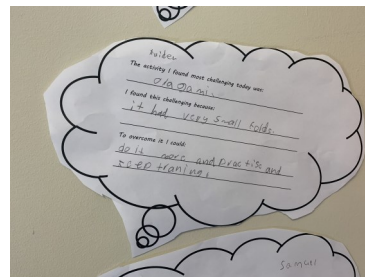 The activity I found most challenging today was:
oragami.
I found this challenging because:
it had very small folds
To overcome it I could:
do it more and practise and
keep traning.
Samuel